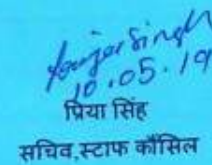 Singh
10.05.19
प्रिया सिंह
सचिव,स्टाफ कौंसिल